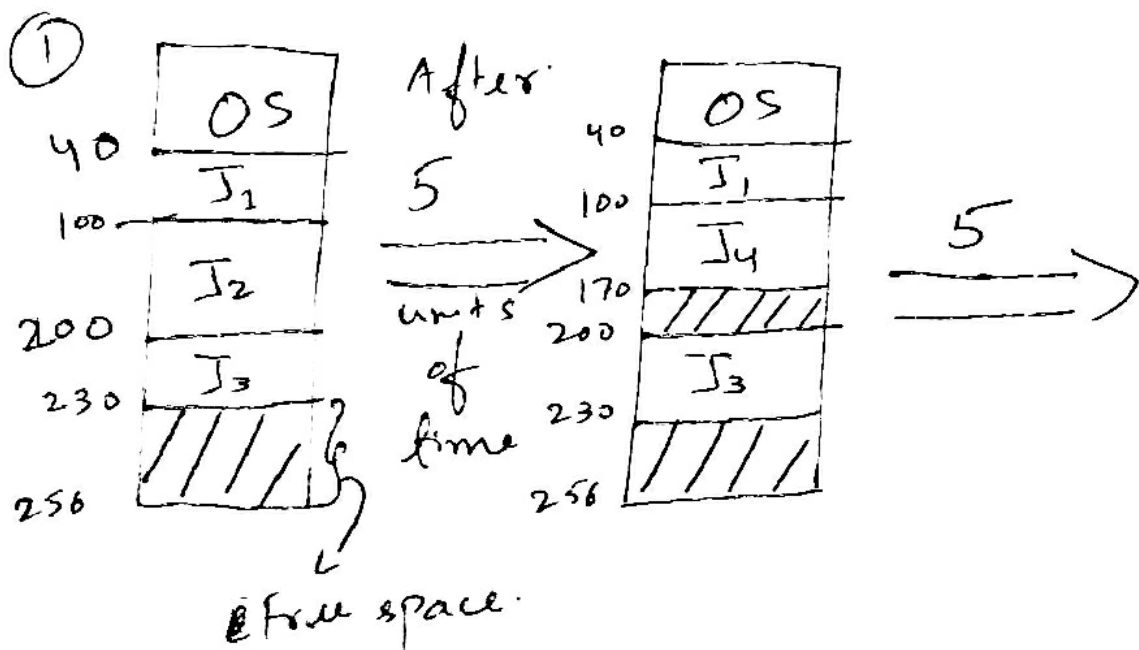 ①
OS
40
J1
100
J2
200
J3
230
256
Free space.
After
5
units
of
time
OS
40
J1
100
J4
170
200
J3
230
256
5